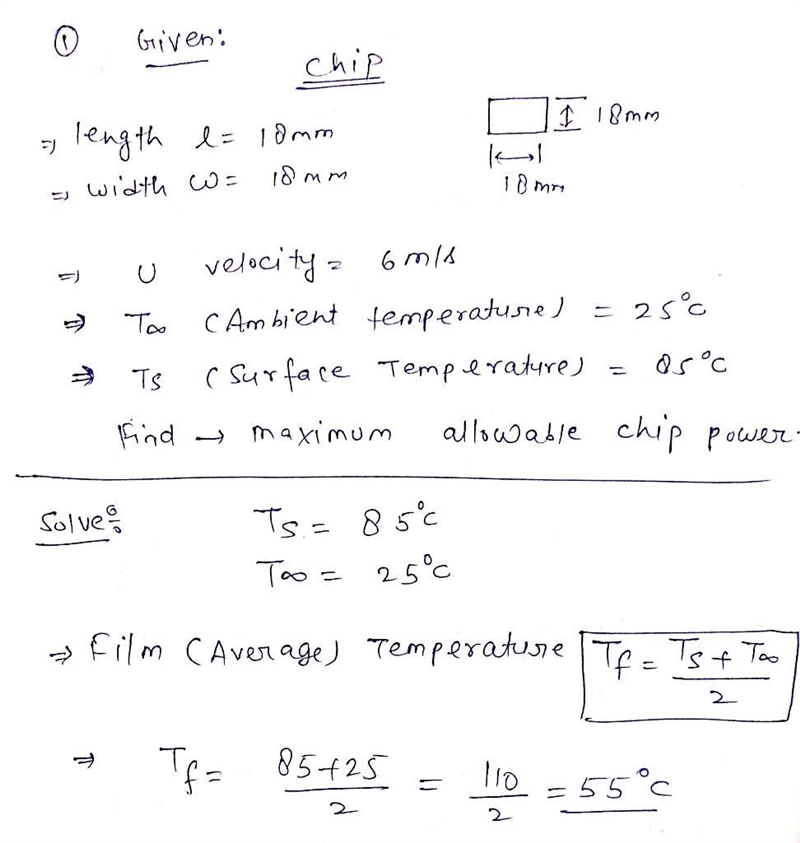 ① Given:
Chip
⇒ length l = 18mm
⇒ width w = 18mm
18mm
18mm
⇒ U velocity = 6 m/s
⇒ T∞ (Ambient temperature) = 25°C
⇒ Ts (Surface Temperature) = 85°C
Find → maximum allowable chip power.
Solve:
Ts = 85°C
T∞ = 25°C
⇒ Film (Average) Temperature Tf = Ts + T∞ / 2
⇒ Tf = 85+25 / 2 = 110 / 2 = 55°C